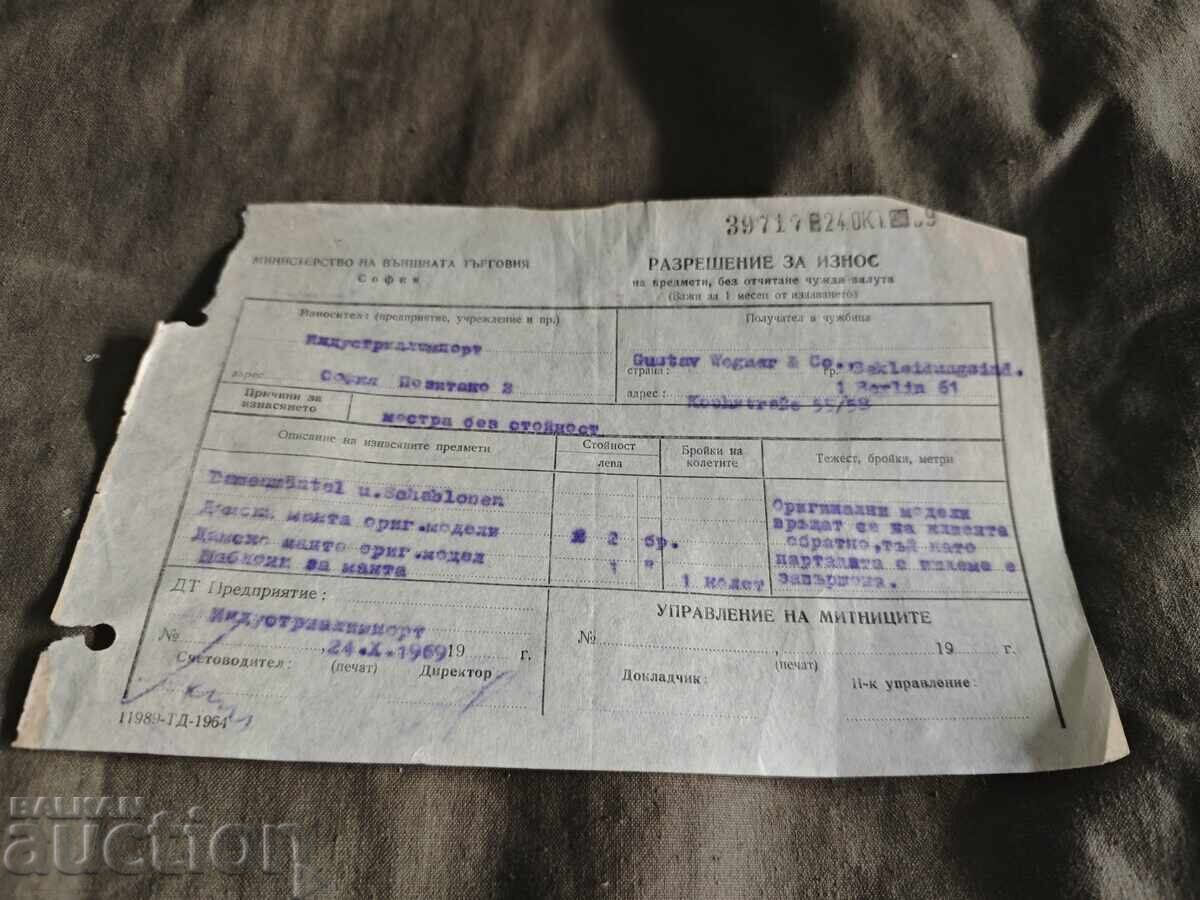 39717 24.ОКТ 69
МИНИСТЕРСТВО НА ВЪНШНАТА ТЪРГОВИЯ
София
РАЗРЕШЕНИЕ ЗА ИЗНОС
на предмети, без отчитане чужда валута
(Важи за 1 месец от издаването)
Износител: (предприятие, учреждение и пр.)
Индустриалимпорт
адрес: София Позитано 3
Получател в чужбина
Gustav Wegner & Co., Bekleidungsind.
страна: гр. 1 Berlin 61
адрес: Kochstraße 55/58
Причини за изнасянето
мостра без стойност
Описание на изнасяните предмети
Стойност
лева
Бройки на колетите
Тежест, бройки, метри
Damenmäntel u. Schablonen
Дамски манта ориг.модели 2 бр.
Дамско манто ориг.модел 1 "
Шаблони за манта 1 колет
Оригинални модели
връщат се на клиента
обратно, тъй като
парталата с ишлеме е
завършена.
ДТ Предприятие:
Индустриалимпорт
№ , 24.X.1969 19 г.
Счетоводител: (печат) Директор
УПРАВЛЕНИЕ НА МИТНИЦИТЕ
№ , 19 г.
(печат)
Докладчик: Н-к управление:
11989-ТД-1964
BALKAN
auction